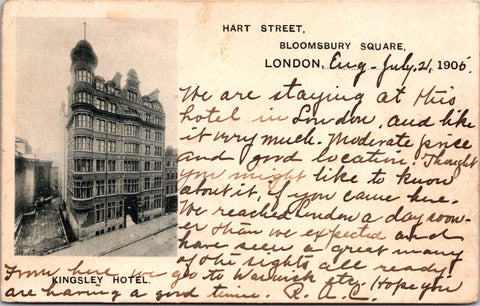 HART STREET,
BLOOMSBURY SQUARE,
LONDON, Eng - July 21, 1905.
We are staying at this
hotel in London, and like
it very much. Moderate price
and good location. Thought
you might like to know
about it, if you came here.
We reached London a day soon-
er than we expected and
have seen a great many
of the sights all ready!
From here we go to Warwick etc. Hope you
are having a good time. R.A.C.
KINGSLEY HOTEL.